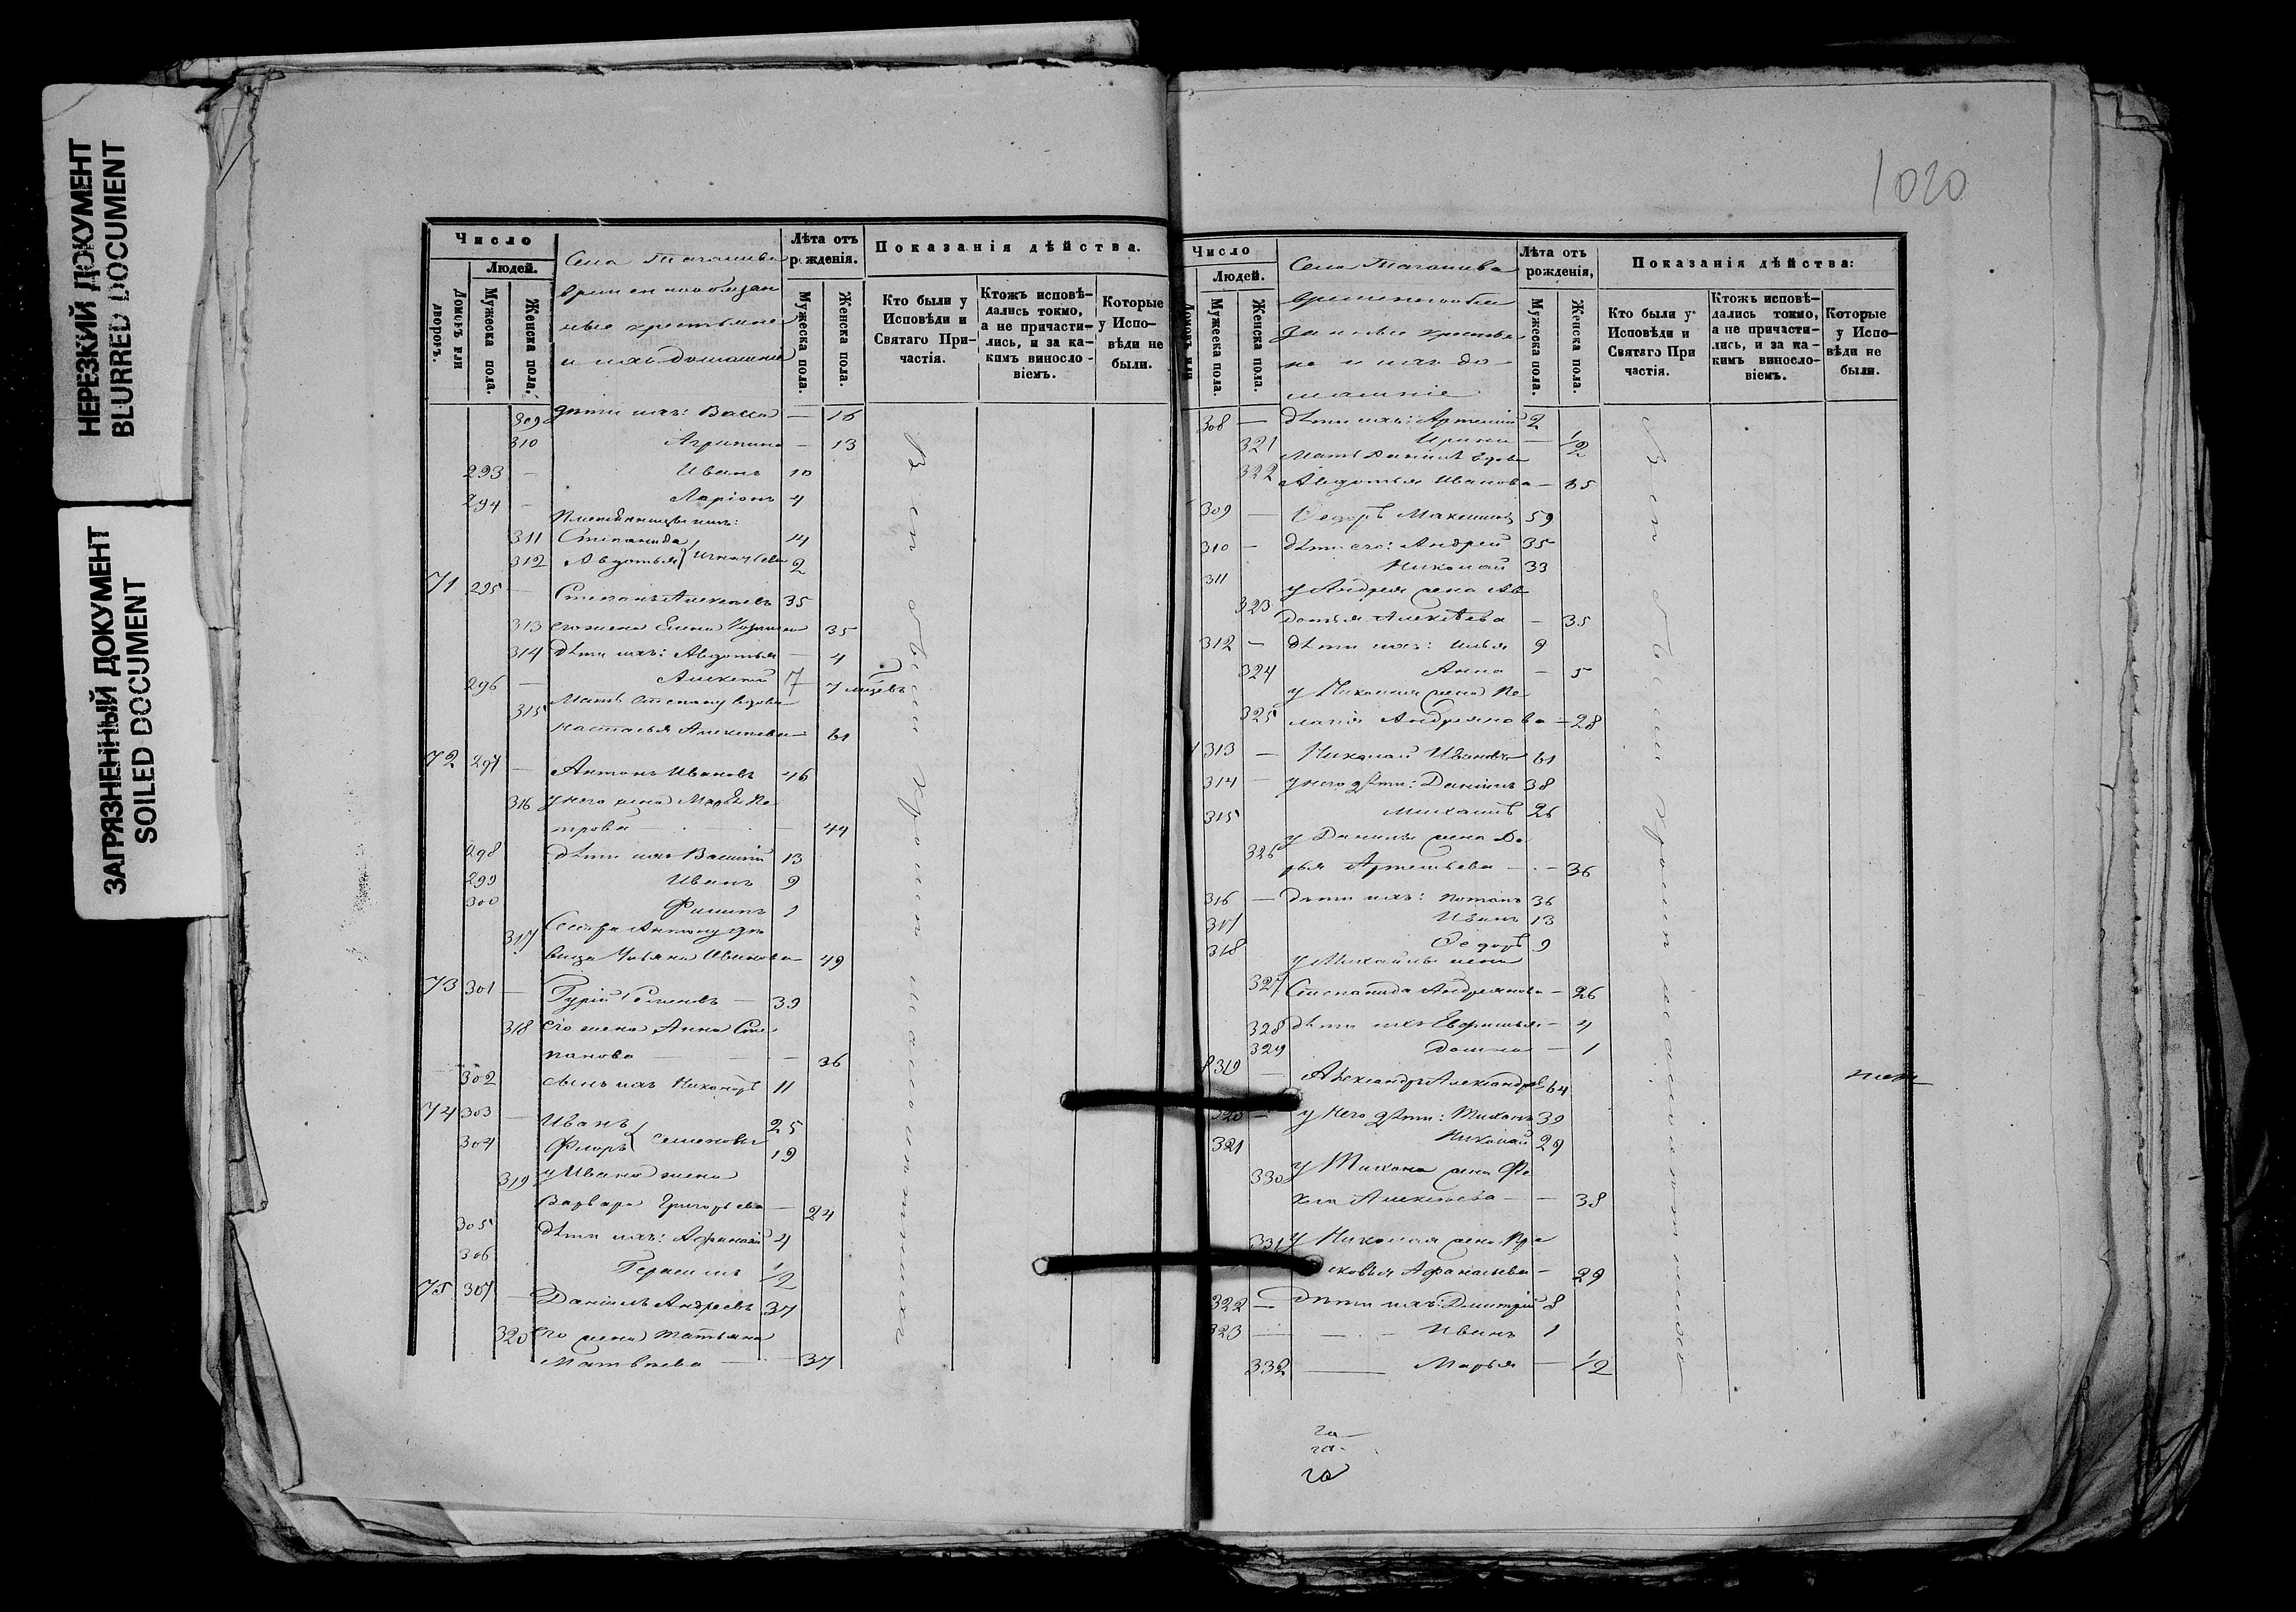 НЕРЕЗКИЙ ДОКУМЕНТ
BLURRED DOCUMENT
ЗАГРЯЗНЕННЫЙ ДОКУМЕНТ
SOILED DOCUMENT
1020
Число
Людей.
Домовъ или дворовъ.
Мужеска пола.
Женска пола.
Села
временнообязан
ные крестьяне
и ихъ домашніе
Лѣта отъ рожденія.
Мужеска пола.
Женска пола.
Показанія дѣйства.
Кто были у Исповѣди и Святаго Причастія.
Ктожъ исповѣдались токмо, а не причастились, и за какимъ винословіемъ.
Которые у Исповѣди не были.
309 дѣти ихъ: Васса — 16
310 Агрипина — 13
293 — Иванъ 10
294 — Ларіонъ 4
Племянницы ихъ:
311 Степанида 14
312 Авдотья Игнатьевы 2
71 295 — Степанъ Алексѣевъ 35
313 его жена Елена 35
314 дѣти ихъ: Авдотья — 4
296 — Алексѣй 7
Мать Степану вдова
315 Настасья Алексѣева — 61
72 297 — Антонъ Ивановъ 46
316 у него жена Марѳа Пе
трова — 44
298 дѣти ихъ Василій 13
299 Иванъ 9
300 Филипъ 1
Сестра Антону дѣ
317 вица Ульяна Иванова 49
73 301 — Гурій Семеновъ — 39
318 его жена Анна Сте
панова — 36
302 сынъ ихъ Никаноръ 11
74 303 — Иванъ 25
304 Флоръ Семеновы 19
319 у Ивана жена
Варвара Григорьева — 24
305 дѣти ихъ: Афанасій 4
306 Герасимъ 1/2
75 307 — Даніилъ Андреевъ 37
320 его жена Татьяна
Матвѣева — 37
Всѣ были у
Число
Людей.
Домовъ или
Мужеска пола.
Женска пола.
Села
временнообя
занные крестья
не и ихъ до-
машніе
Лѣта отъ рожденія,
Мужеска пола.
Женска пола.
Показанія дѣйства:
Кто были у Исповѣди и Святаго При частія.
Ктожъ исповѣдались токмо, а не причастились, и за какимъ винословіемъ.
Которые у Исповѣди не были.
308 — дѣти ихъ: Артемій 2
321 Ирина — 1/2
Мать Даніилѣ вдова
322 Авдотья Иванова — 65
309 — Ѳедоръ Максимовъ 59
310 — дѣти его: Андрей 35
311 Николай 33
у Андрея жена Ав
323 дотья Алексѣева — 35
312 — дѣти ихъ: Илья 9
324 Анна — 5
у Николая жена Пе
325 лагія Андреянова — 28
313 — Николай Ивановъ 61
314 — у него дѣти: Даніилъ 38
315 Михаилъ 26
у Данилы жена Да
326 рья Артемьева — 36
316 — дѣти ихъ: Потапъ 36
317 Иванъ 13
318 Ѳедоръ 9
у Михайлы жена
327 Степанида Андреянова — 26
328 дѣти ихъ — 4
329 Домна — 1
319 — Александръ Александровъ 64
320 — у него дѣти: Тихонъ 39
321 Николай 29
330 у Тихона жена Ѳе
кла Алексѣева — 38
331 у Николая жена Пра
сковья Афанасьева — 29
322 — дѣти ихъ: Дмитрій 8
323 — Иванъ 1
332 — Марья — 1/2